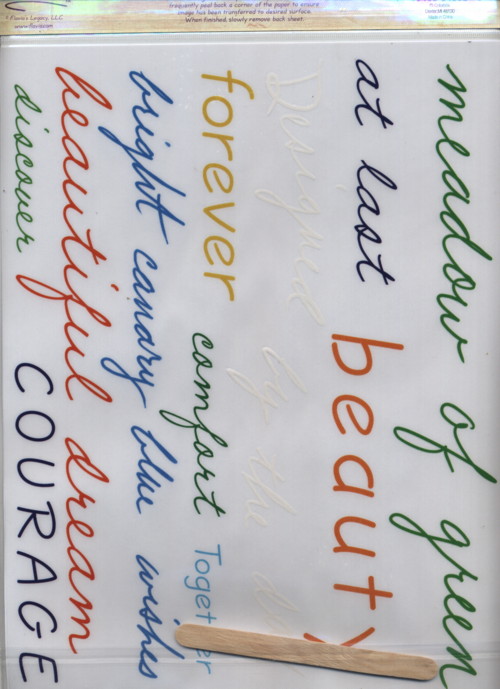 Frequently peel back a corner of the paper to ensure
image has been transferred to desired surface.
When finished, slowly remove back sheet.
meadow of green
at last beauty
Designed by the
forever comfort Together
bright canary blue wishes
beautiful dream
discover COURAGE